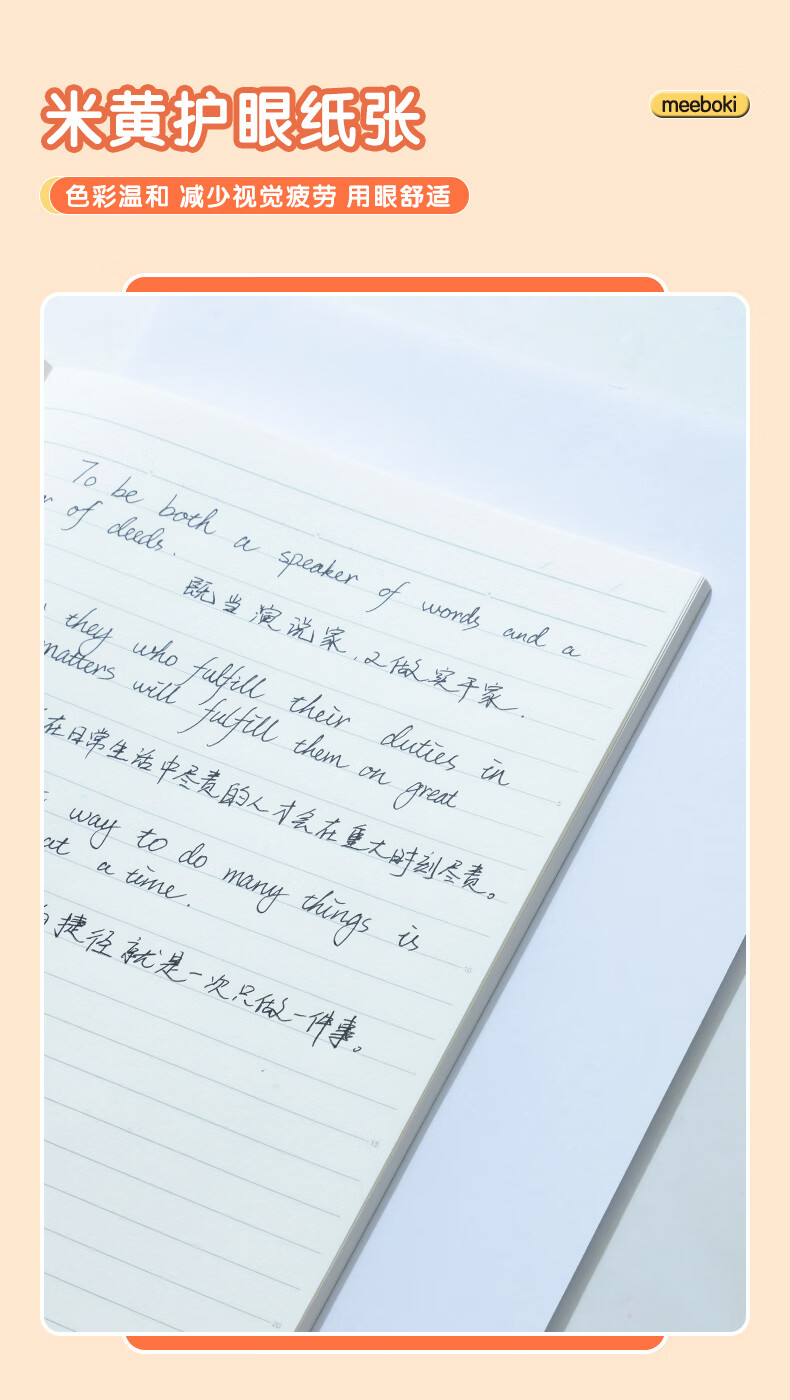 米黄护眼纸张
meeboki
色彩温和 减少视觉疲劳 用眼舒适
To be both a speaker of words and a
of deeds.
既当演说家,又做实干家.
they who fulfill their duties in
matters will fulfill them on great
在日常生活中尽责的人才会在重大时刻尽责。
5
way to do many things is
at a time.
10
捷径就是一次只做一件事。
15
20